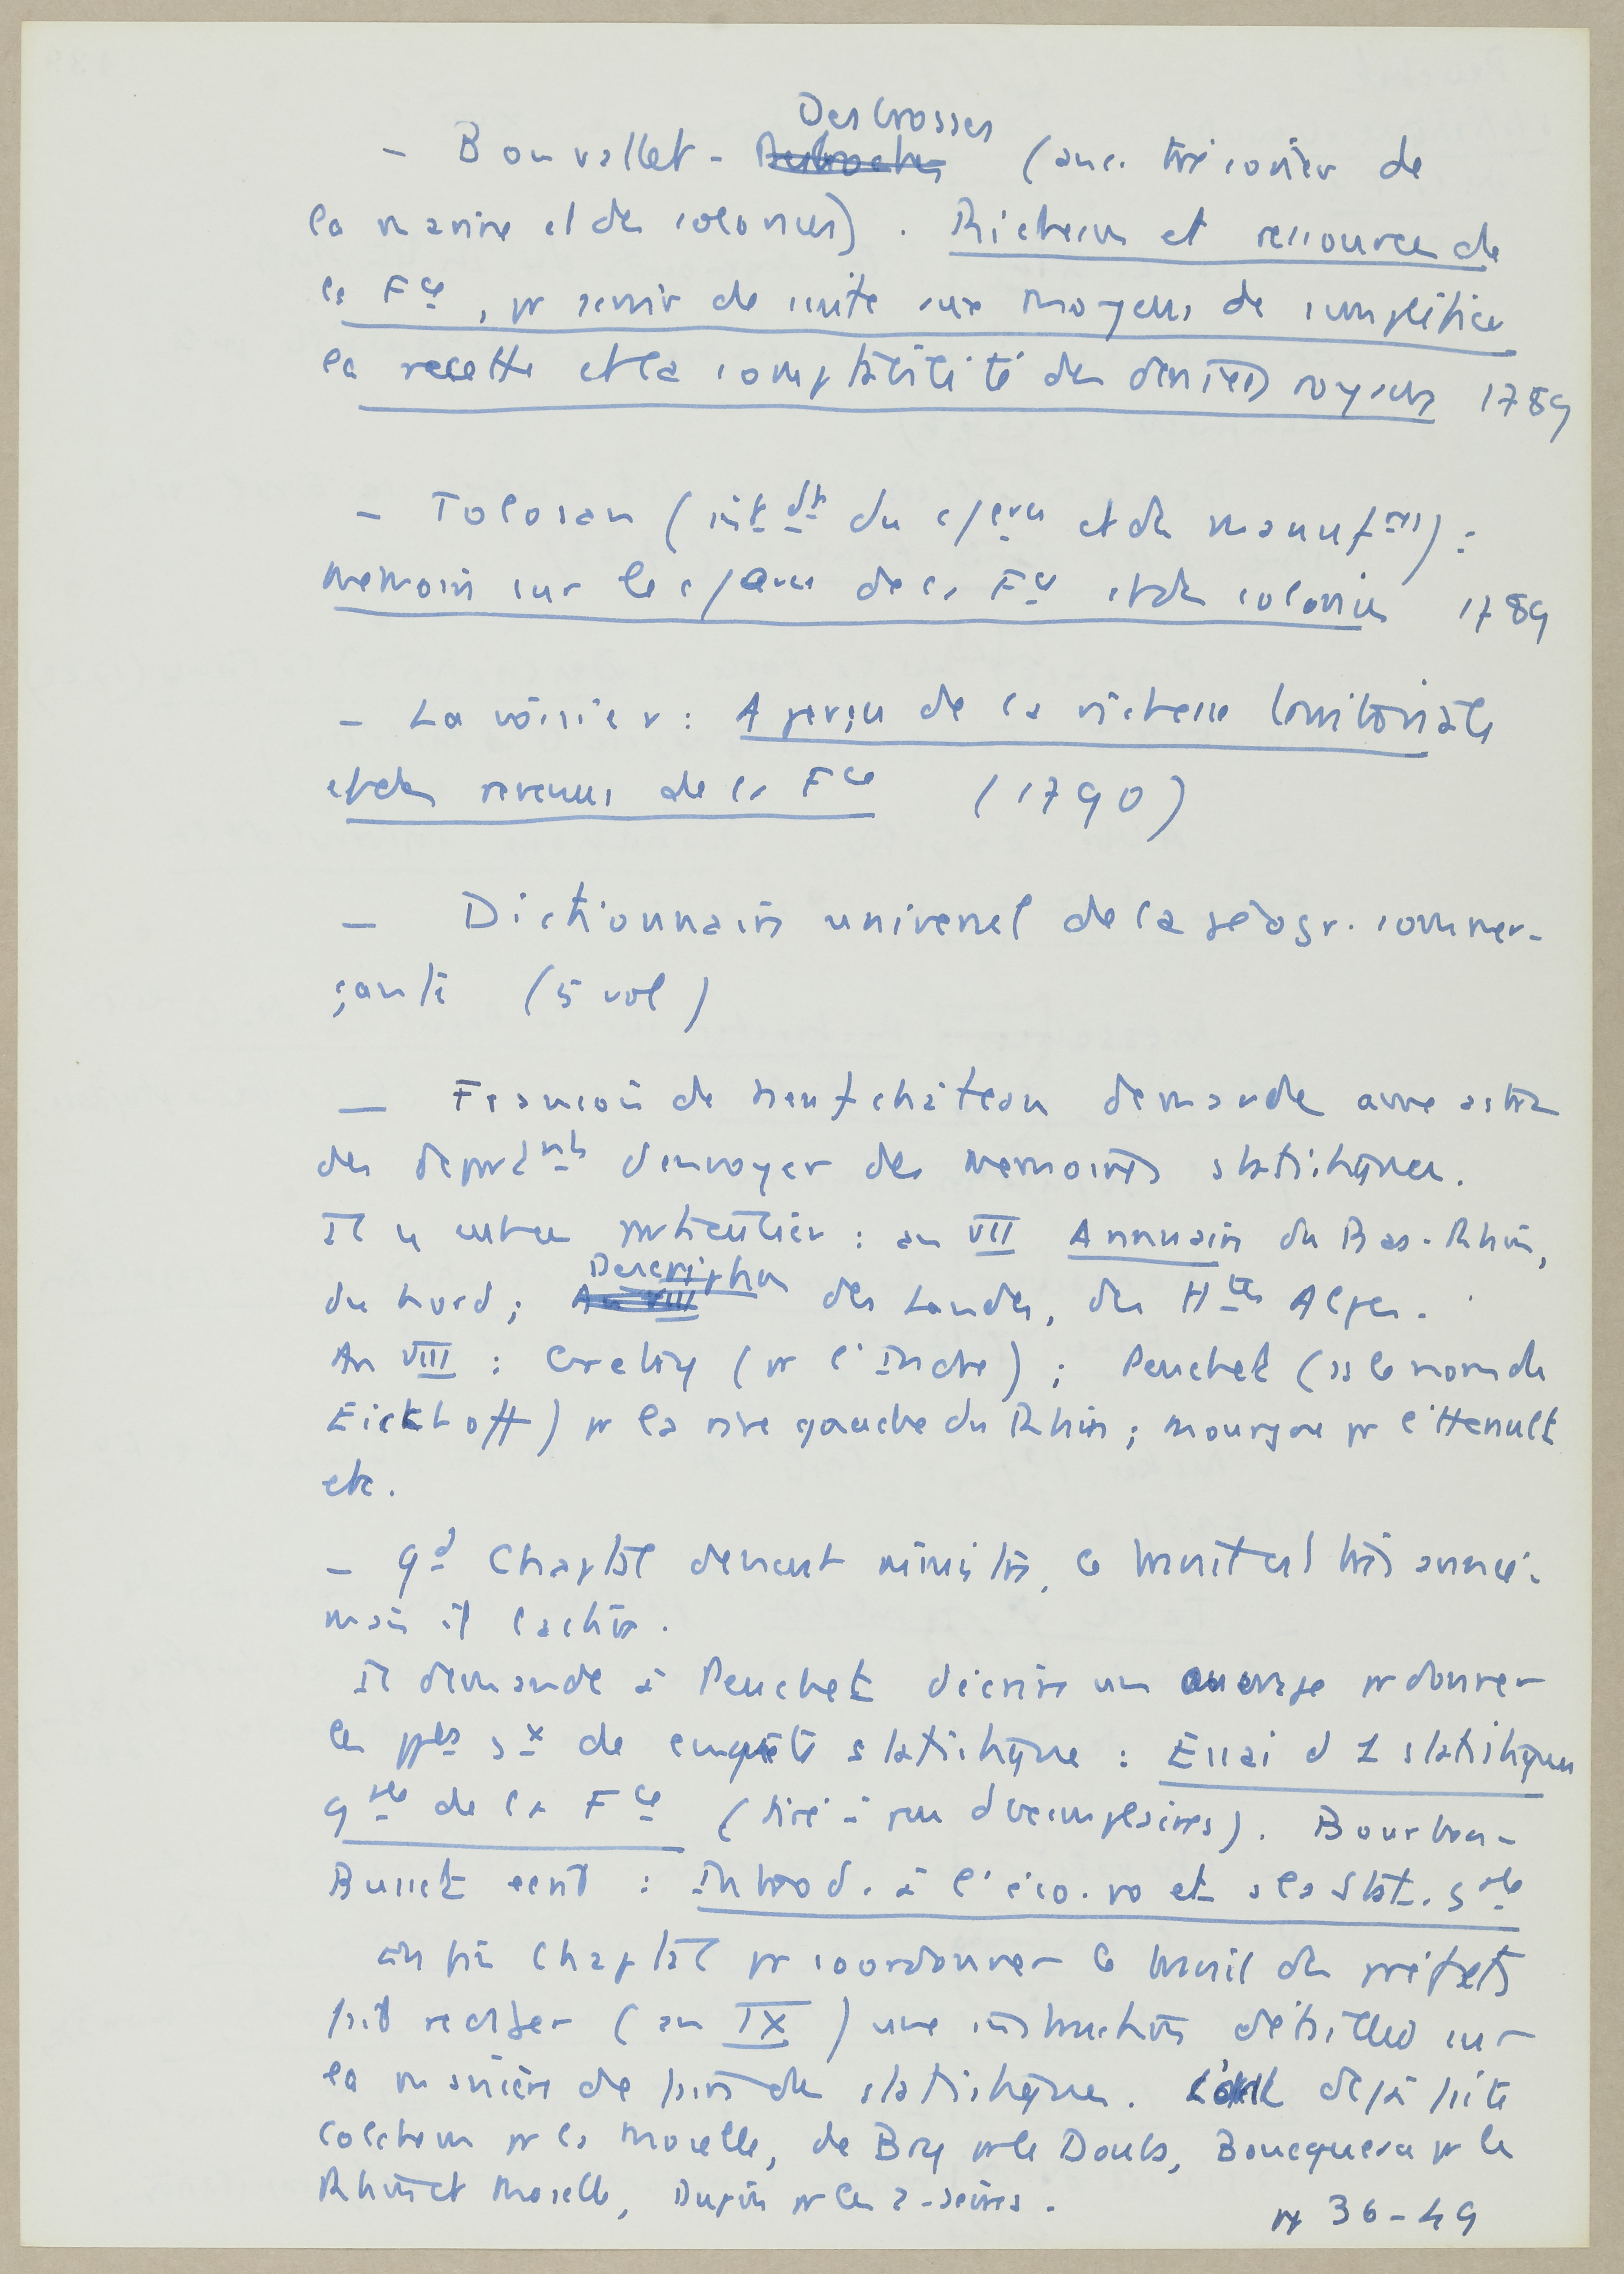 Desbrosses
- Bonvallet - (anc. trésorier de
la marine et des colonies). Richesses et ressources de
la Fce, pr servir de suite aux moyens de simplifier
la recette et la comptabilité des deniers royaux 1789
- Tolosan (intdt du c/erce et des manufres) :
Memoire sur le c/erce de la Fce et des colonies 1789
- Lavoisier : Aperçu de la richesse territoriale
et des revenus de la Fce (1790)
- Dictionnaire universel de la géogr. commer-
çante (5 vol)
- François de Neufchâteau demande aux
des départnts d'envoyer des memoires statistiques.
Il y eut en particulier : an VII Annuaire du Bas-Rhin,
Description
du Nord ; An VIII des Landes, des Htes Alpes.
An VIII : (pr l'Indre) ; Peuchet (ss le nom de
Eickhoff) pr la rive gauche du Rhin ; Mourgue pr l'Herault
etc.
- qd Chaptal devient ministre, le travail est très avancé :
mais il
Il demande à Peuchet d'ecrire un ouvrage pr donner
les ppes gx de enquête statistique : Essai d 1 statistique
gnle de la Fce (tiré à peu d'exemplaires). Bourbon-
Busset ecrit : Introd. à l'éco. po et à la Stat. gale
Enfin Chaptal pr coordonner le travail des préfets
fait rediger (an IX) une instruction détaillée sur
la manière de faire des statistiques. déjà faite
Colchen pr la Moselle, de Bry pr le Doubs, Boucqueau pr le
Rhin et Moselle, Dupin pr les 2-Sèvres.
pp 36-49